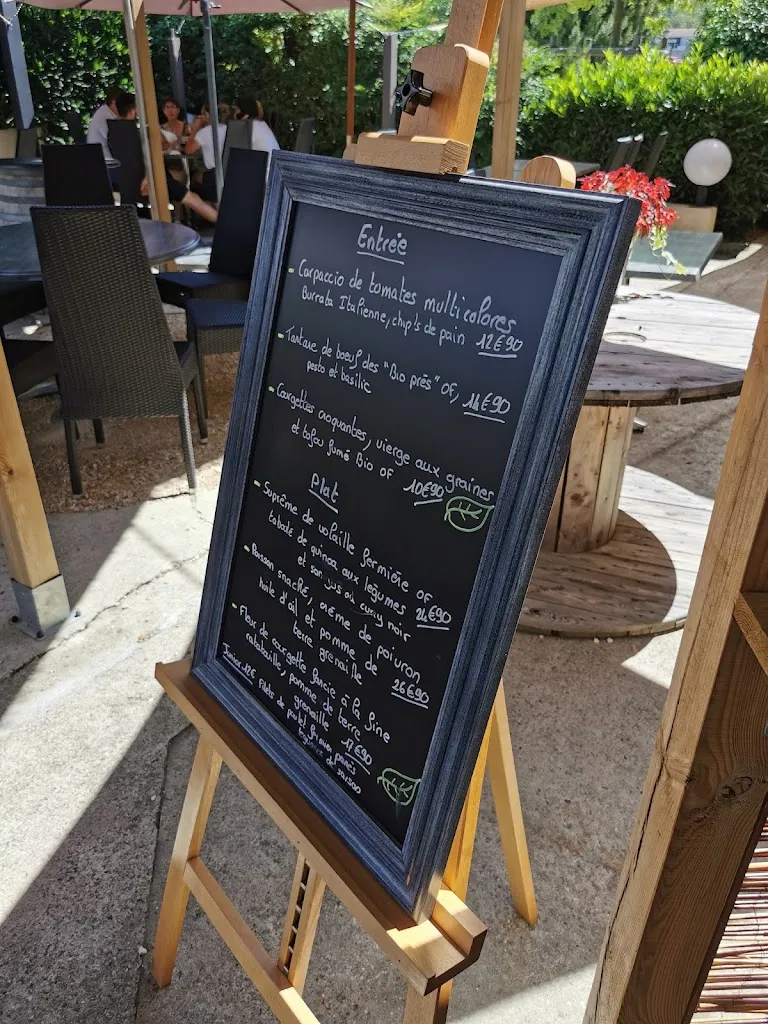 Entrée
- Carpaccio de tomates multicolores
Burrata Italienne, chip's de pain 12€90
- Tartare de boeuf des "Bio près" OF, 14€90
pesto et basilic
- Courgettes croquantes, vierge aux graines
et tofou fumé Bio OF 10€90
Plat
- Suprême de volaille fermière OF
taboulé de quinoa aux légumes
et son jus au curry noir 24€90
- Poisson snacké, crème de poivron
huile d'ail et pomme de
terre grenaille 26€90
- Fleur de courgette farcie à la fine
ratatouille, pomme de terre
grenaille 17€90
Junior 12€ Filets de poulet fermier panés
légumes de saison